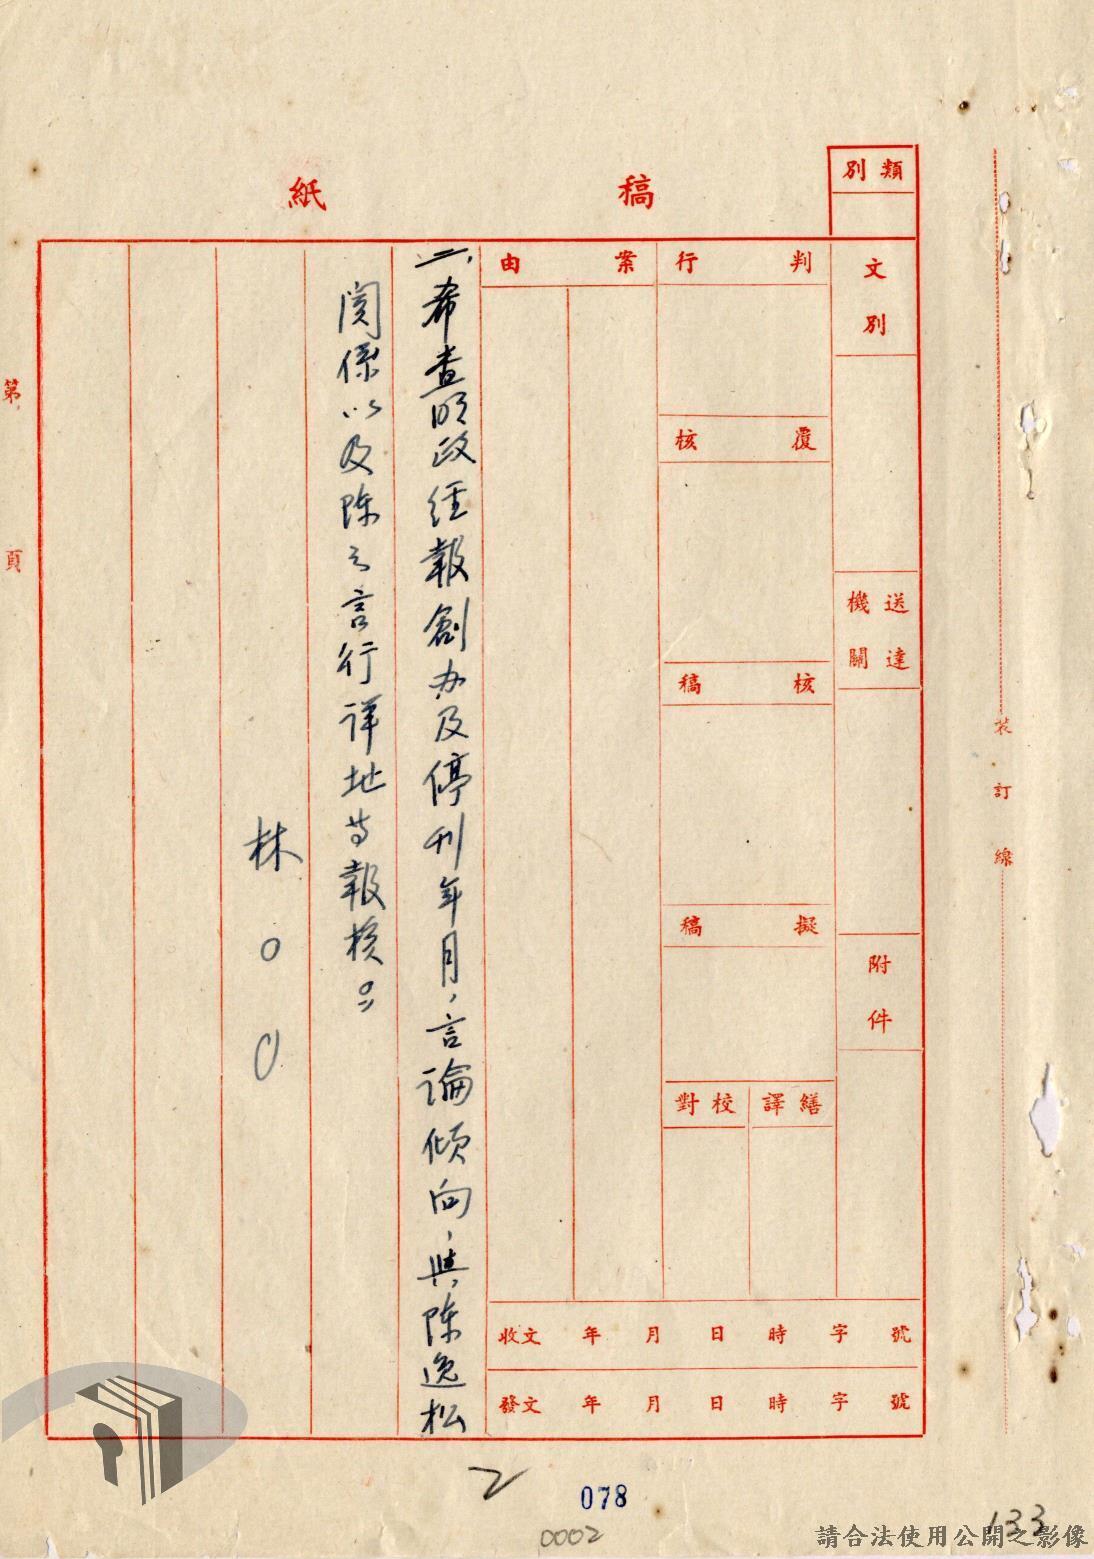 稿紙
類別
文別
送達機關
附件
判行
覆核
核稿
擬稿
繕譯
校對
案由
收文 年 月 日 時 字 號
發文 年 月 日 時 字 號
二、希查明政经報創办及停刊年月，言論傾向，與陈逸松
関係以及陈之言行詳地址等報核。
林○○
第 頁
裝訂線
2
078
0002
133
請合法使用公開之影像